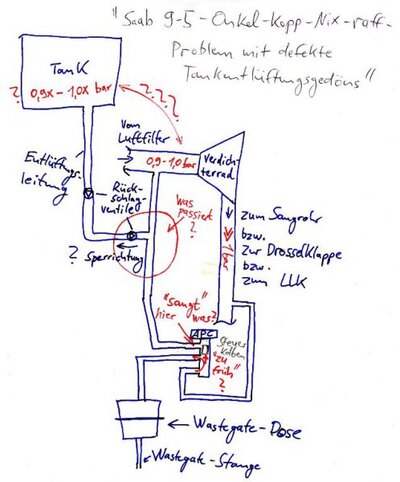 "Saab 9-5-Onkel-Kopp-Nix-raff-
Problem mit defekte
Tankentlüftungsgedöns"
Tank
? 0,9x – 1,0x bar
? ? ?
vom
Luftfilter
0,9-1,0 bar
Verdich-
terrad
Entlüftungs-
leitung
Rück-
schlag-
ventile
Was
passiert
?
? Sperrichtung
zum Saugrohr
bzw.
zur Drosselklappe
bzw.
zum LLK
1 bar
"saugt" was?
hier
APC
Steuer
kolben
"zu
früh"
?
Wastegate-Dose
Wastegate-Stange